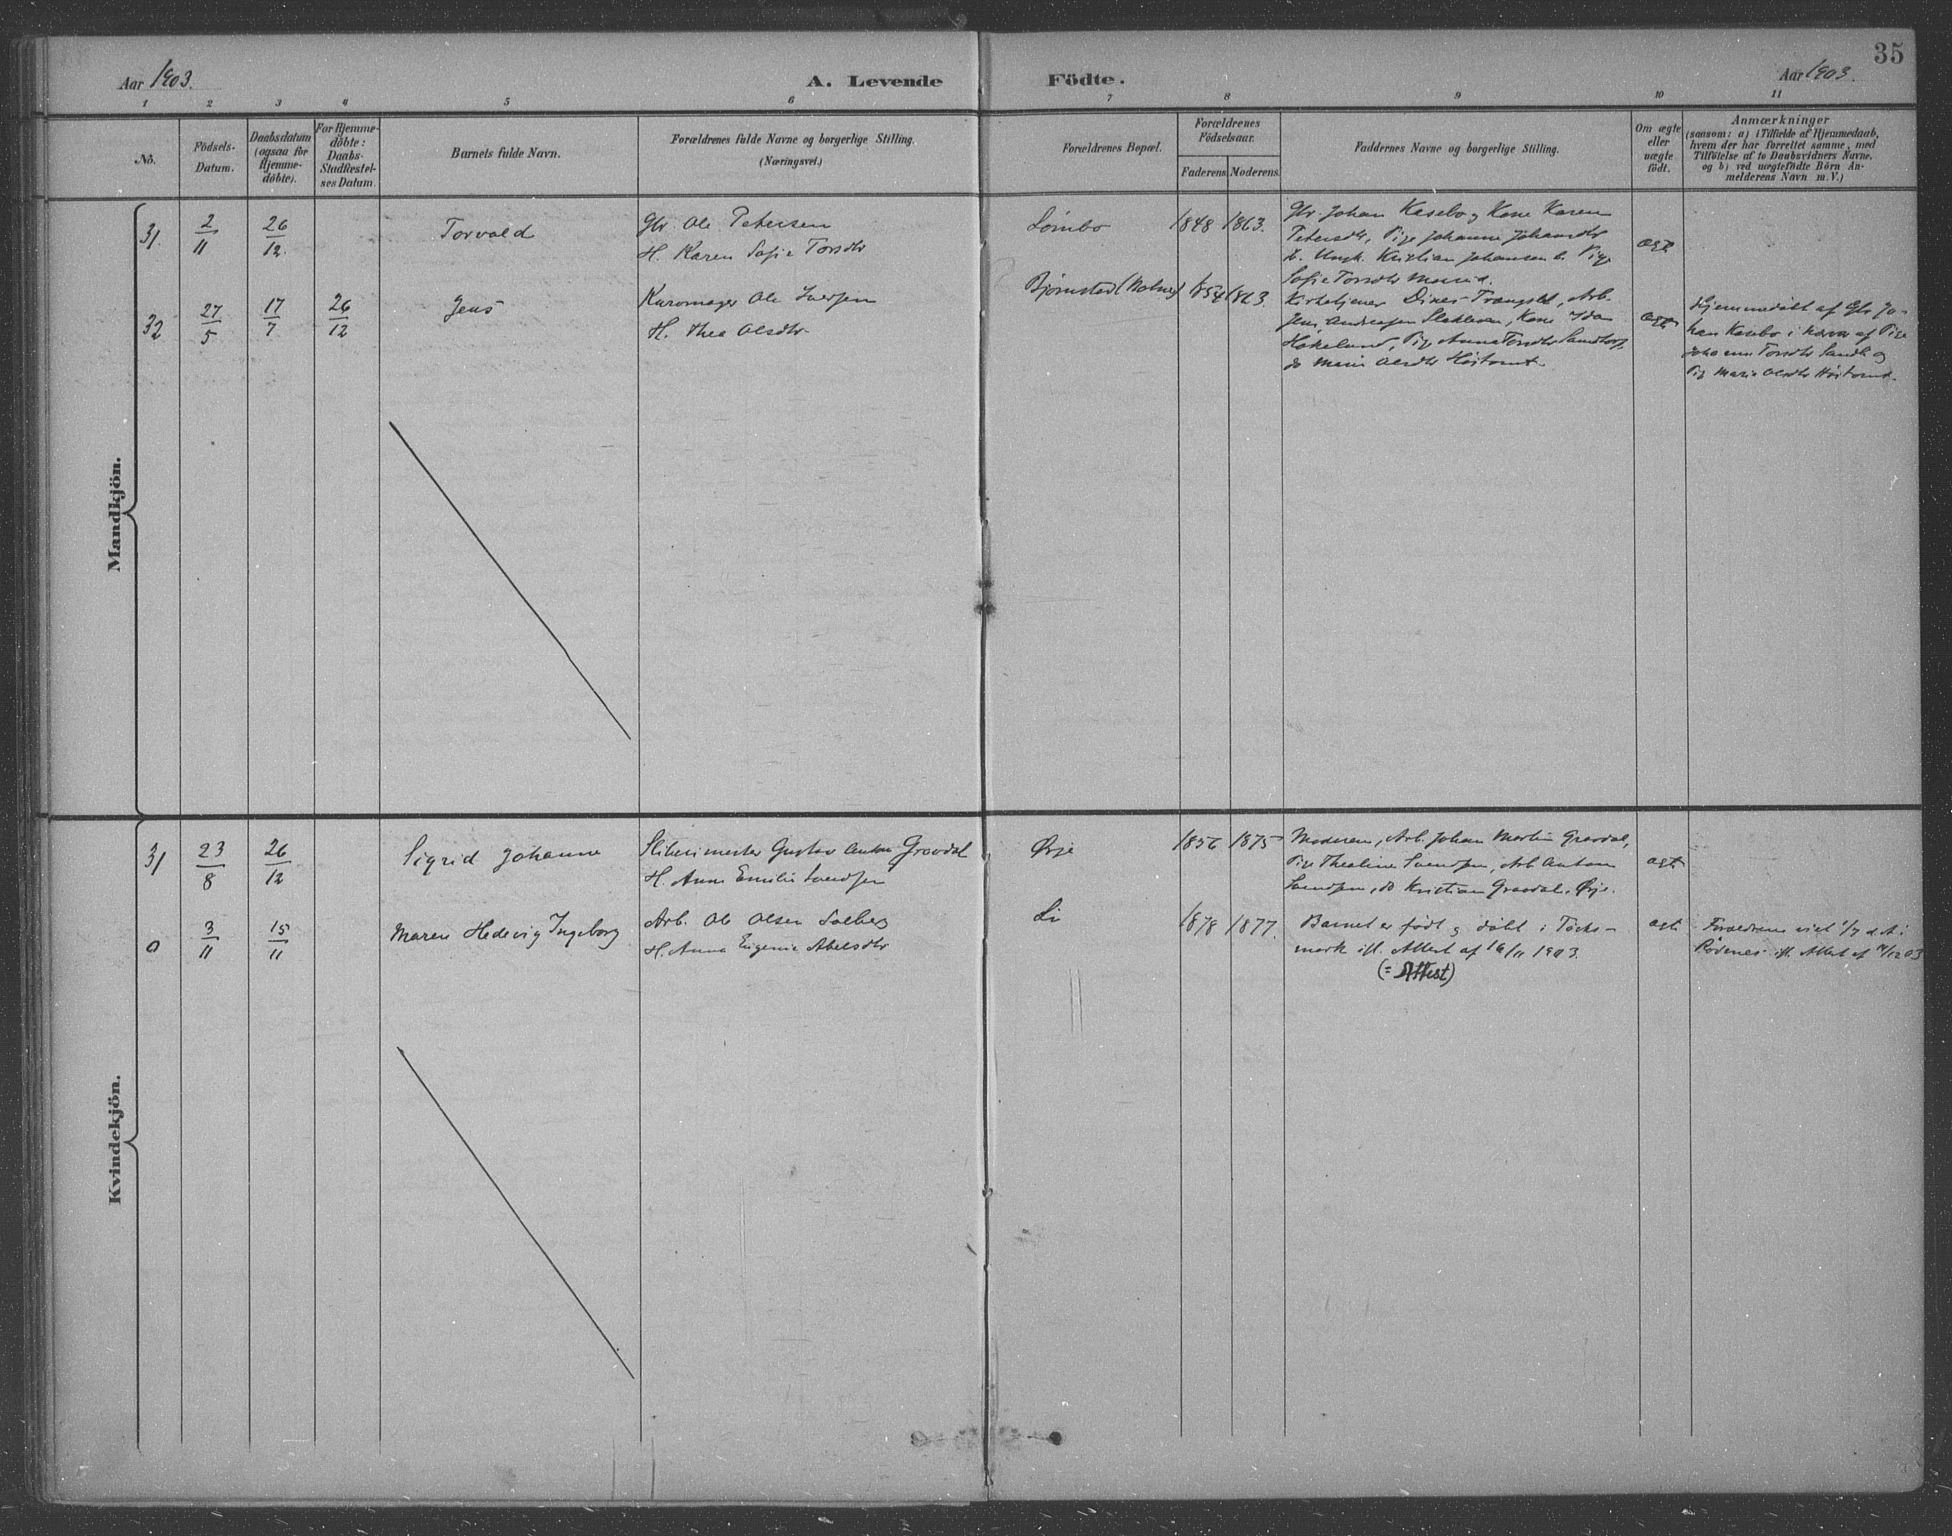 35
Aar 1903.
A. Levende Födte.
Aar 1903.
1 2 3 4 5 6 7 8 9 10 11
No.
Födsels-
Datum.
Daabsdatum
(ogsaa for
Hjemme-
döbte).
For Hjemme-
döbte:
Daabs-
Stadfæstel-
ses Datum.
Barnets fulde Navn.
Forældrenes fulde Navne og borgerlige Stilling.
(Næringsvei.)
Forældrenes Bopæl.
Forældrenes
Födselsaar.
Faderens. Moderens.
Faddernes Navne og borgerlige Stilling.
Om ægte
eller
uægte
födt.
Anmærkninger
(saasom: a) i Tilfælde af Hjemmedaab,
hvem der har forrettet samme, med
Tilföielse af to Daabsvidners Navne,
og b) ved uægtefödte Börn An-
melderens Navn m. V.)
Mandkjön.
31. 2/11 26/12. Torvald
Gbr. Ole Petersen
H. Karen Sofie Torsdtr
Lømbo 1848 1863.
Gbr. Johan Kasebo, Kone Karen
Petersdtr, Pige Johanne Johansdtr
Ungk. Kristian Johansen Pige
Sofie Torsdtr
ægte
32 27/5 17/7 26/12 Jens
Ole Iversen
H. Thea Olsdtr
Bjørnstad (Holmen) 1854 1863.
Kirketjener Dines Trængsel, Arb.
Jens Andreasen Kone Ida
Hakelund, Pige Anna Torsdtr
do Marie Olsdtr Høitomt
ægte
Hjemmedøbt af Gbr Jo-
han Kasebo i nærv af Pige
Johanne Torsdtr og
Pig Marie Olsdtr Høitomt.
Kvindekjön.
31 23/8 26/12 Sigrid Johanne
Slibesimester Gustav Anton Graadal
H. Anna Emilie Svendsen
Ørje 1856 1875
Moderen, Arb. Johan Martin Graadal,
Pige Thealine Svendsen, Arb Anton
Svendsen, do Kristian Graadal, Ørje.
ægte
0 3/11 15/11 Maren Hedevig Ingeborg
Arb. Ole Olsen Solberg
H. Anna Eugenie Abelsdtr
Li 1878 1877.
Barnet er født og døbt i Töcks-
mark ifl. Attest af 16/11 1903.
(= Attest)
ægte
Forældrene viet 1/7 d.A. i
Rødenes ifl. Attest af /12 03